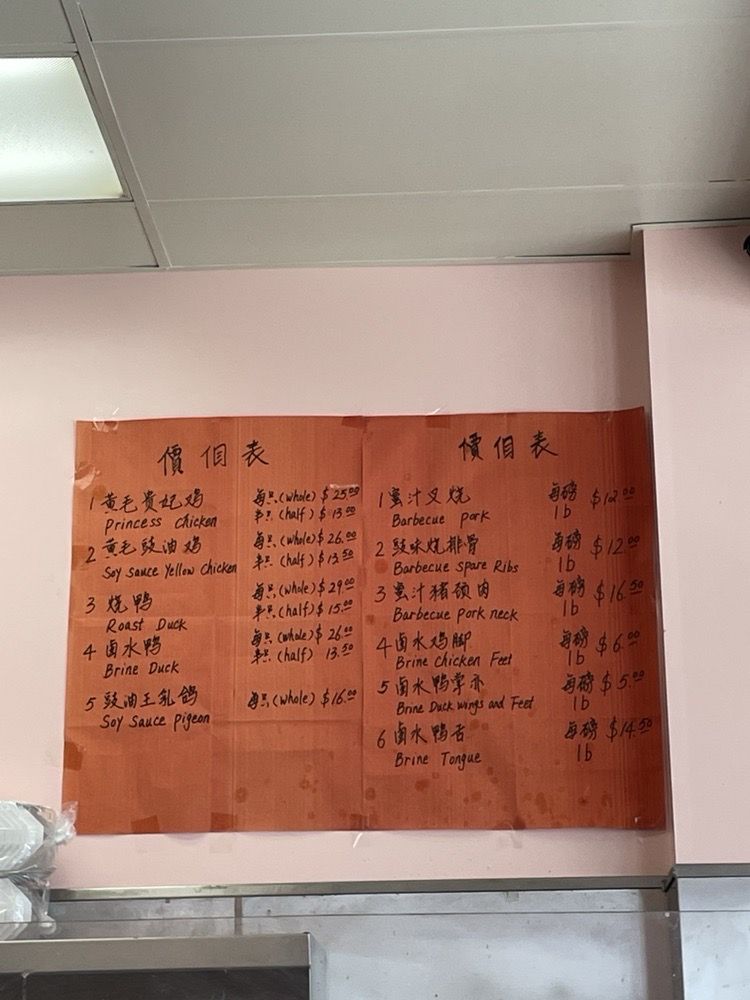 價佀表
1 黄毛贵妃鸡 每只(whole) $25.00
Princess Chicken 半只(half) $13.00
2 黄毛豉油鸡 每只(whole) $26.00
Soy Sauce Yellow Chicken 半只(half) $13.50
3 烧鸭 每只(whole) $29.00
Roast Duck 半只(half) $15.00
4 卤水鸭 每只(whole) $26.00
Brine Duck 半只(half) 13.50
5 豉油王乳鸽 每只(whole) $16.00
Soy Sauce pigeon
價佀表
1 蜜汁叉烧 每磅 $12.00
Barbecue pork 1b
2 豉味烧排骨 每磅 $12.00
Barbecue spare Ribs 1b
3 蜜汁猪颈肉 每磅 $16.50
Barbecue pork neck 1b
4 卤水鸡脚 每磅 $6.00
Brine Chicken Feet 1b
5 卤水鸭掌亦 每磅 $5.00
Brine Duck wings and Feet 1b
6 卤水鸭舌 每磅 $14.50
Brine Tongue 1b